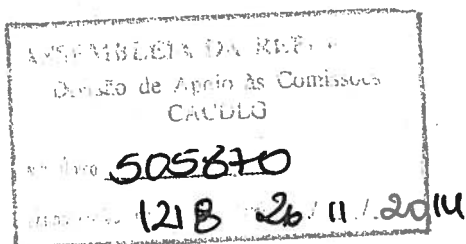 ASSEMBLEIA DA REP
Divisão de Apoio às Comissões
CACDLG
505870
1218 26/11/2014